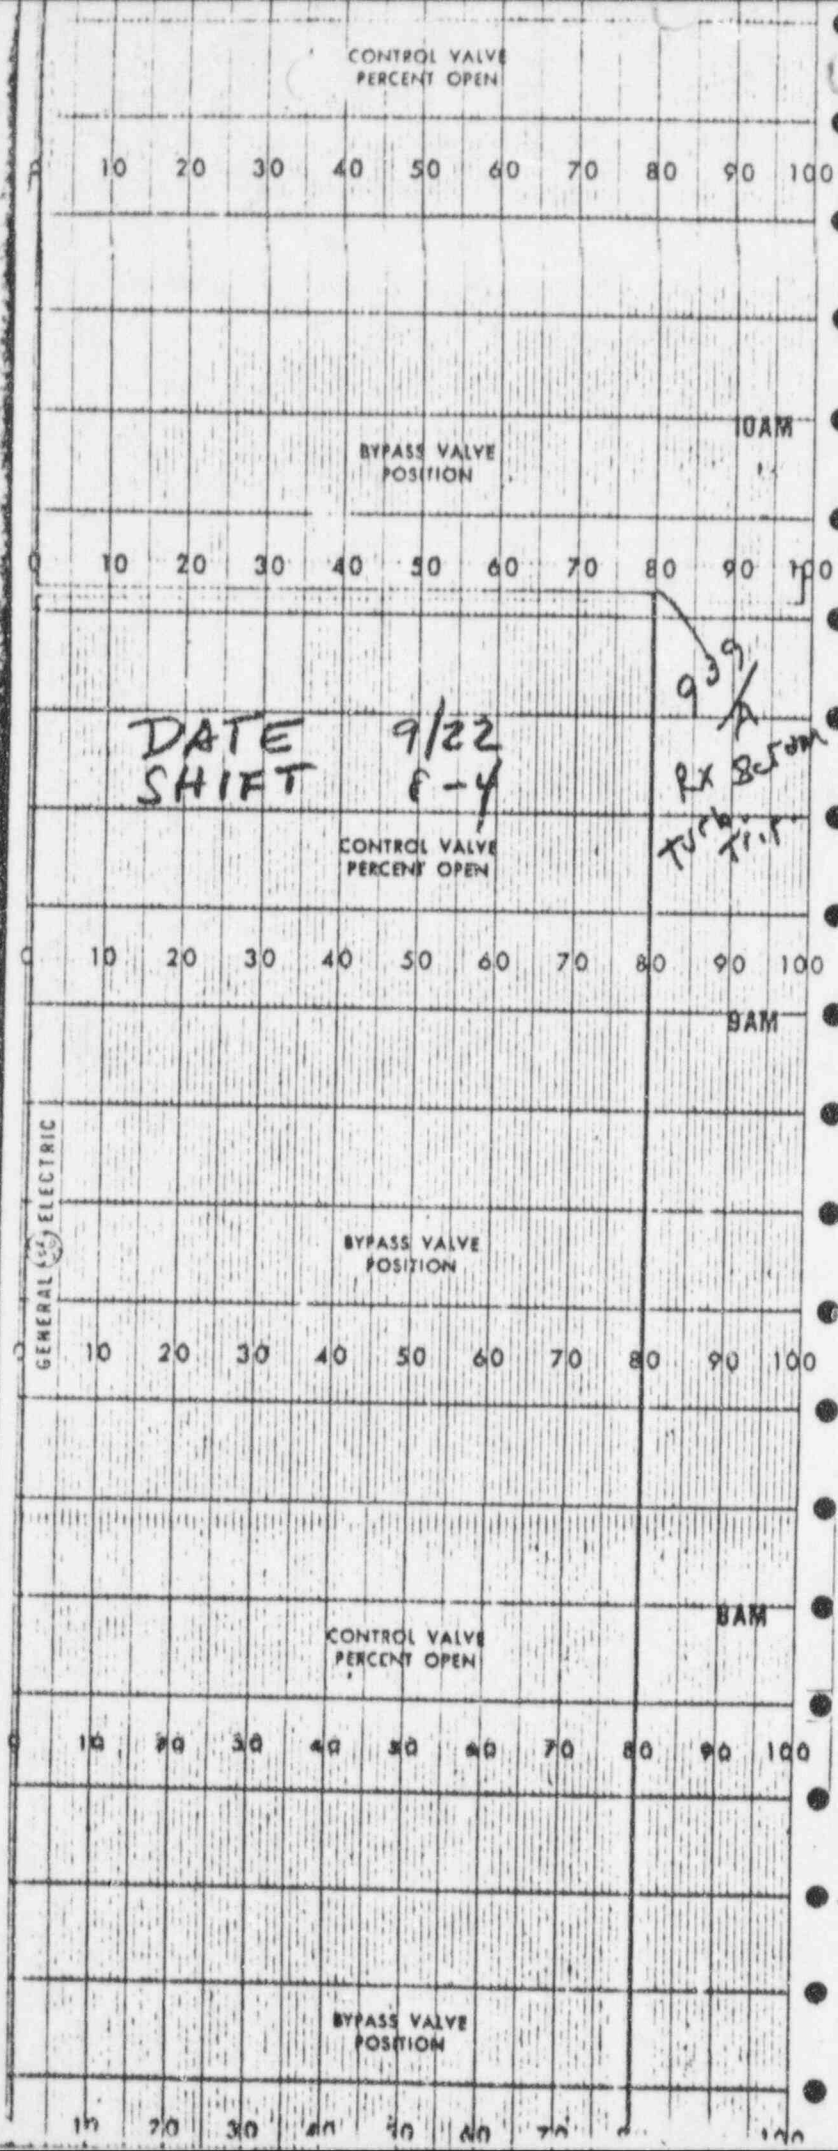 CONTROL VALVE
PERCENT OPEN
0 10 20 30 40 50 60 70 80 90 100
10AM
BYPASS VALVE
POSITION
0 10 20 30 40 50 60 70 80 90 100
9 39/A
DATE 9/22
SHIFT 8-4
RX Scram
Turb Trip
CONTROL VALVE
PERCENT OPEN
0 10 20 30 40 50 60 70 80 90 100
9AM
GENERAL ELECTRIC
BYPASS VALVE
POSITION
0 10 20 30 40 50 60 70 80 90 100
8AM
CONTROL VALVE
PERCENT OPEN
0 10 20 30 40 50 60 70 80 90 100
BYPASS VALVE
POSITION
10 20 30 40 50 60 70 100